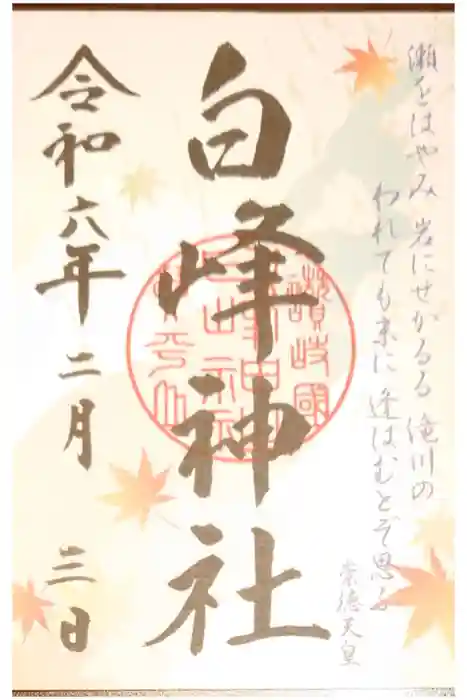 瀬をはやみ 岩にせかるる 滝川の
われても末に 逢はむとぞ思ふ
崇徳天皇
白峰神社
讃岐國
令和六年 二月 三日